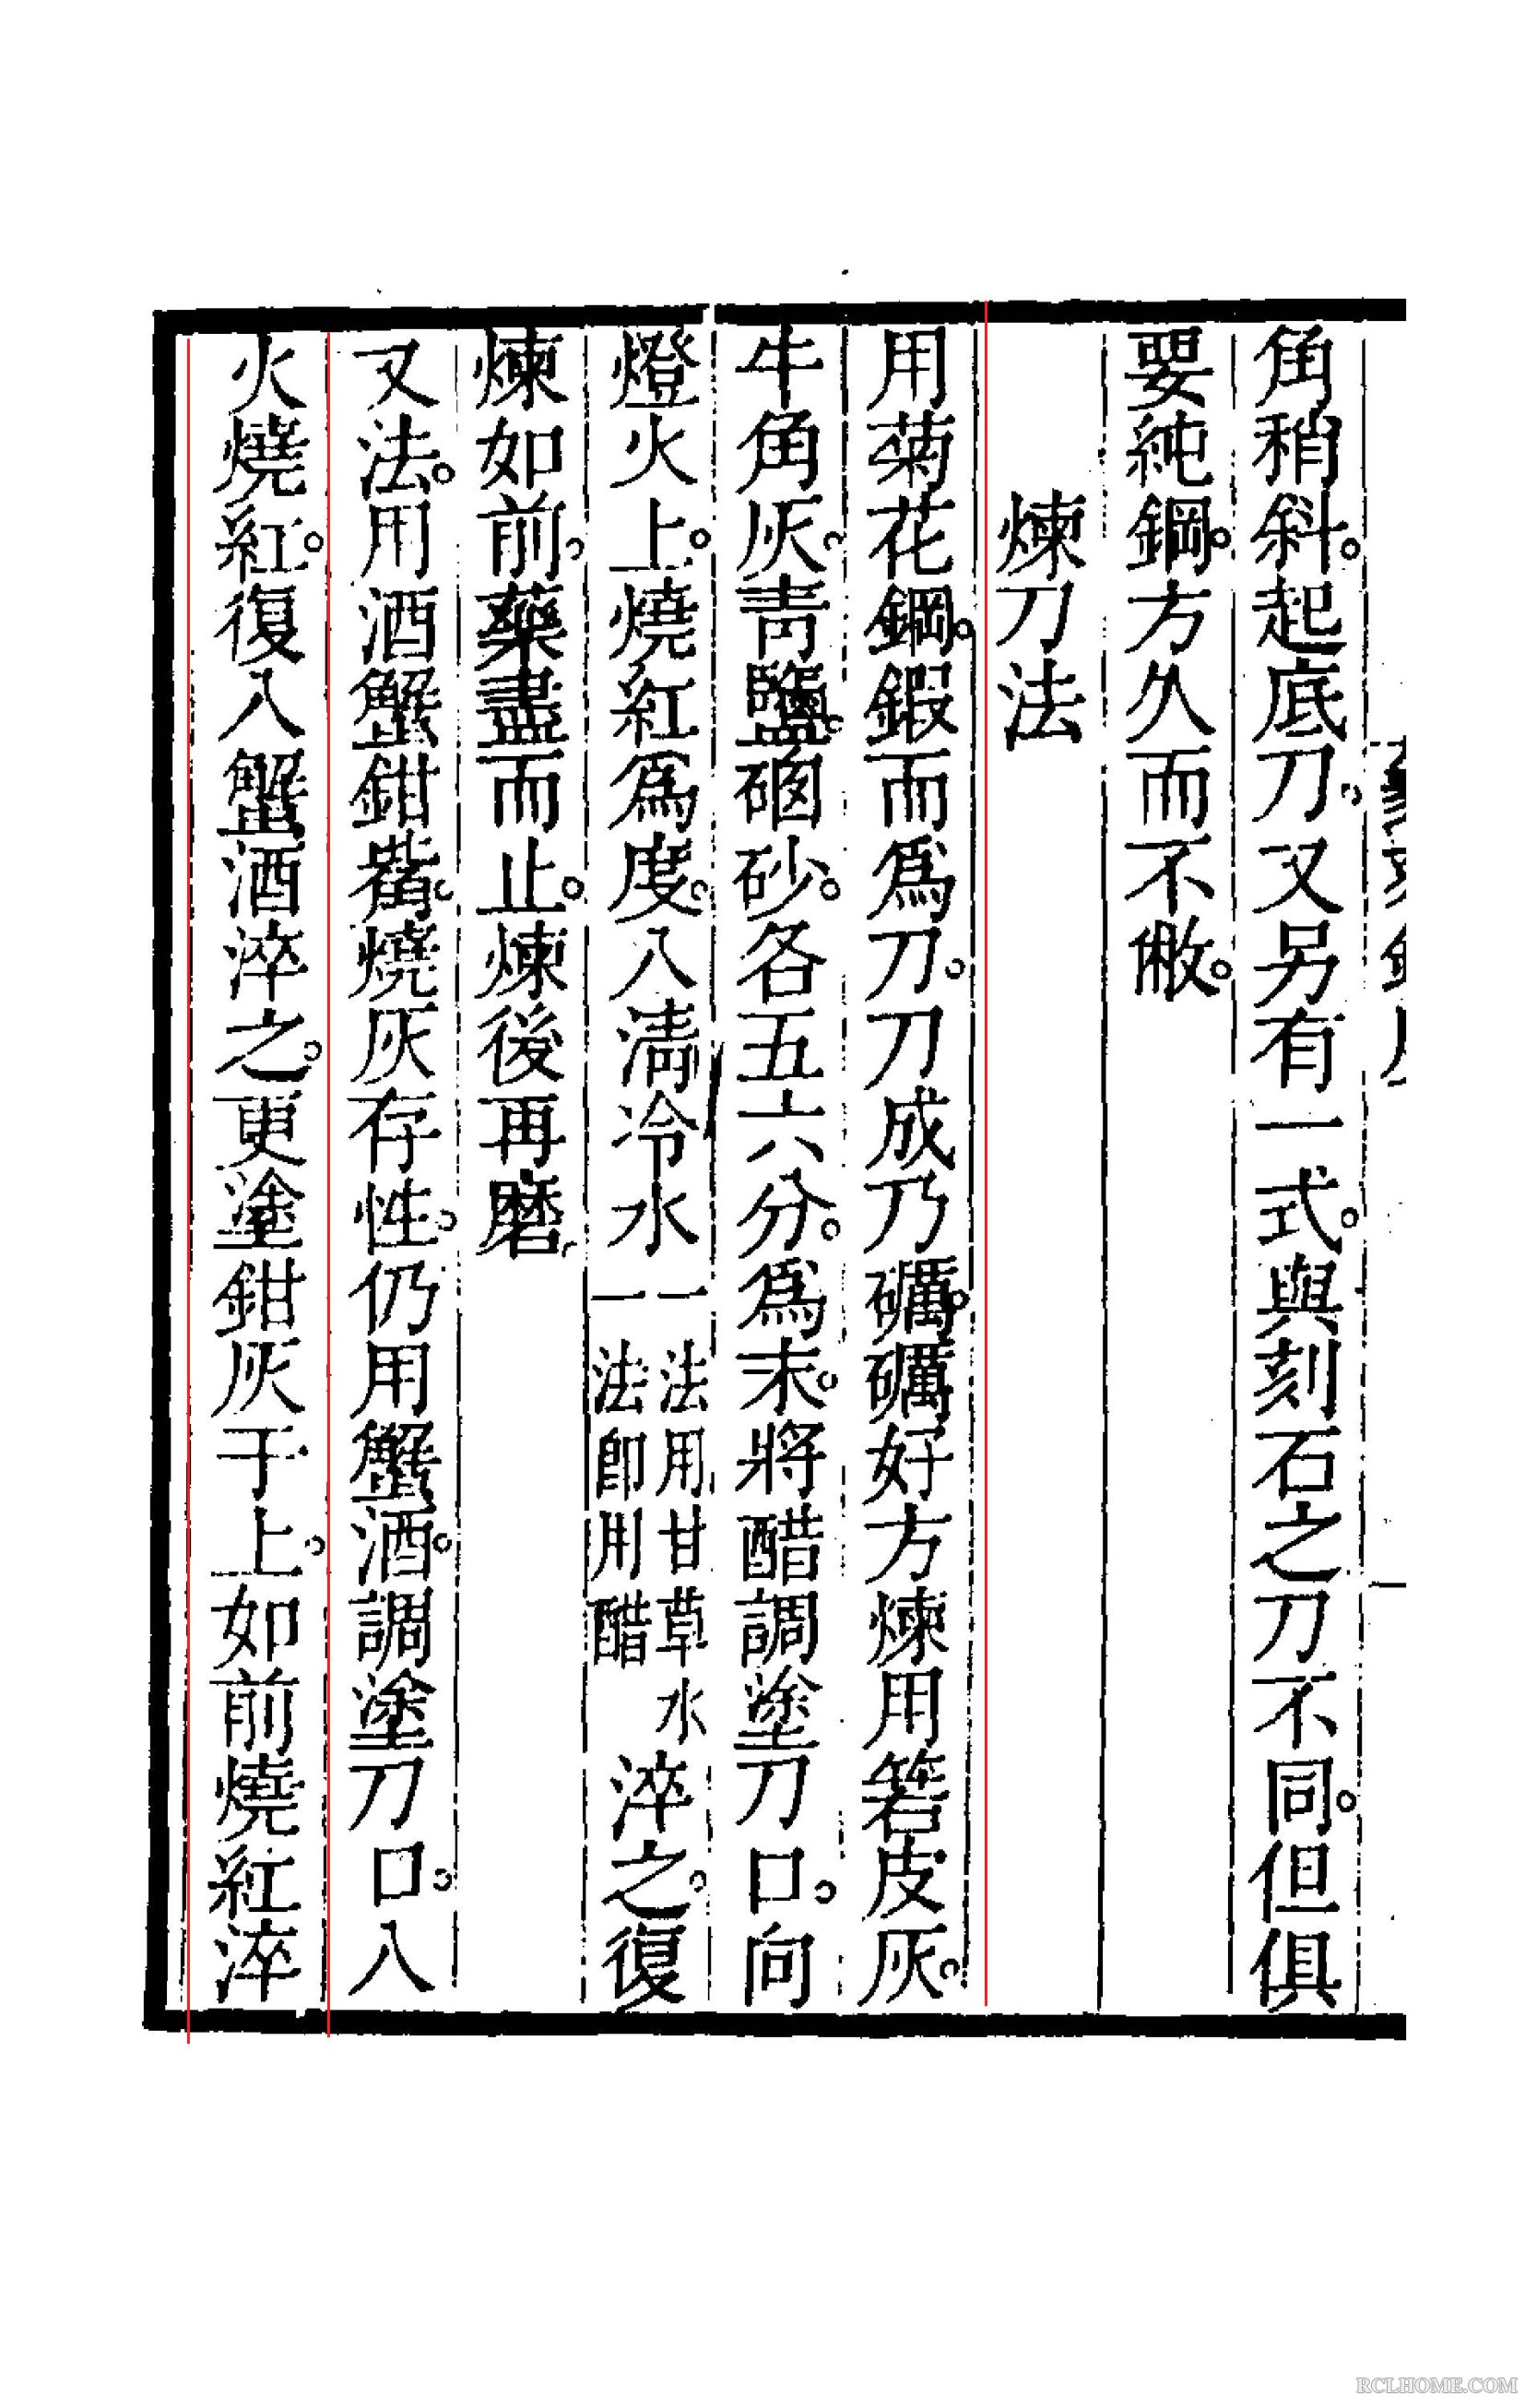 角稍斜。起底刀。又另有一式。與刻石之刀不同。但俱
要純鋼。方久而不敝。
煉刀法
用菊花鋼。鍜而爲刀。刀成乃礪。礪好方煉用箬皮灰。
牛角灰。靑鹽。硇砂。各五六分。爲末。將醋調塗刀口。向
燈火上。燒紅爲度。入淸冷水一法用甘草水一法卽用醋淬之。復
煉如前。藥盡而止。煉後再磨。
又法。用酒蟹鉗觜。燒灰存性。仍用蟹酒。調塗刀口。入
火燒紅。復入蟹酒淬之。更塗鉗灰于上。如前燒紅淬
RCLHOME.COM